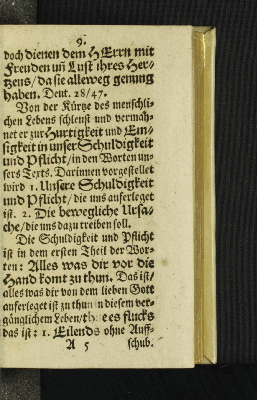 9.
doch dienen dem HErrn mit
Freuden uñ Lust ihres Her-
tzens / da sie allewegen genung
haben. Deut. 28/47.
Von der Kürtze des menschli-
chen Lebens schleust und vermah-
net er zur Hurtigkeit und Em-
sigkeit in unser Schuldigkeit
und Pflicht / in den Worten un-
sers Texts. Darinnen vorgestellet
wird 1. Unsere Schuldigkeit
und Pflicht / die uns auferleget
ist. 2. Die bewegliche Ursa-
che / die uns dazu treiben soll.
Die Schuldigkeit und Pflicht
ist in dem ersten Theil der Wor-
ten: Alles was dir vor die
Hand komt zu thun. Das ist /
alles was dir von dem lieben Gott
auferleget ist zu thun in diesem ver-
gänglichem Leben / thue es flucks
das ist: 1. Eilends ohne Auff-
A 5 schub.